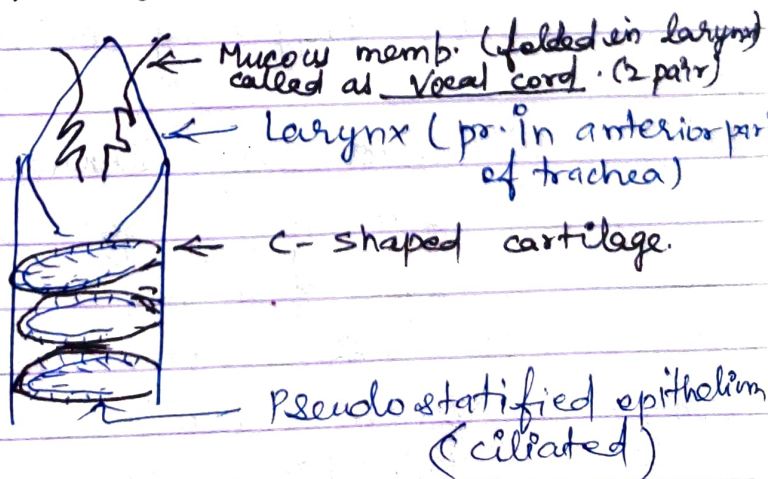 Mucous memb. (folded in larynx)
called as Vocal cord. (2 pair)
Larynx (pr. in anterior par
of trachea)
C- shaped cartilage.
Pseudostatified epithelium
(ciliated)